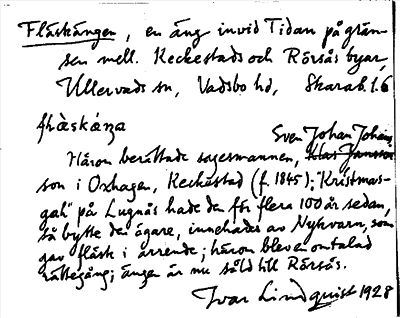 Fläskängen, en äng invid Tidan på grän-
sen mell. Keckestads och Rörsås byar,
Ullervads sn, Vadsbo hd, Skarab. l. 6
flàskáŋa
Sven Johan Johans-
Häron berättade sagesmannen, Klas Jansson
son i Oxhagen, Keckestad (f. 1845); "Kristmas-
gah" på Lugnås hade den för flera 100 år sedan,
så bytte den ägare, innehades av Nykvarn, som
gav fläsk i arrende; häron blev en omtalad
rättegång; ängen är nu såld till Rörsås.
Ivar Lindquist 1928